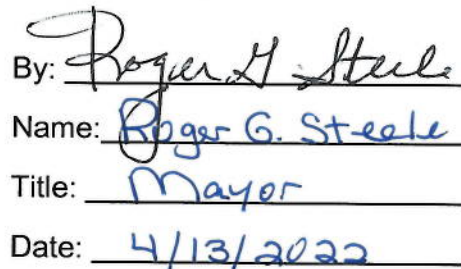 By: Roger G Steele
Name: Roger G. Steele
Title: Mayor
Date: 4/13/2022